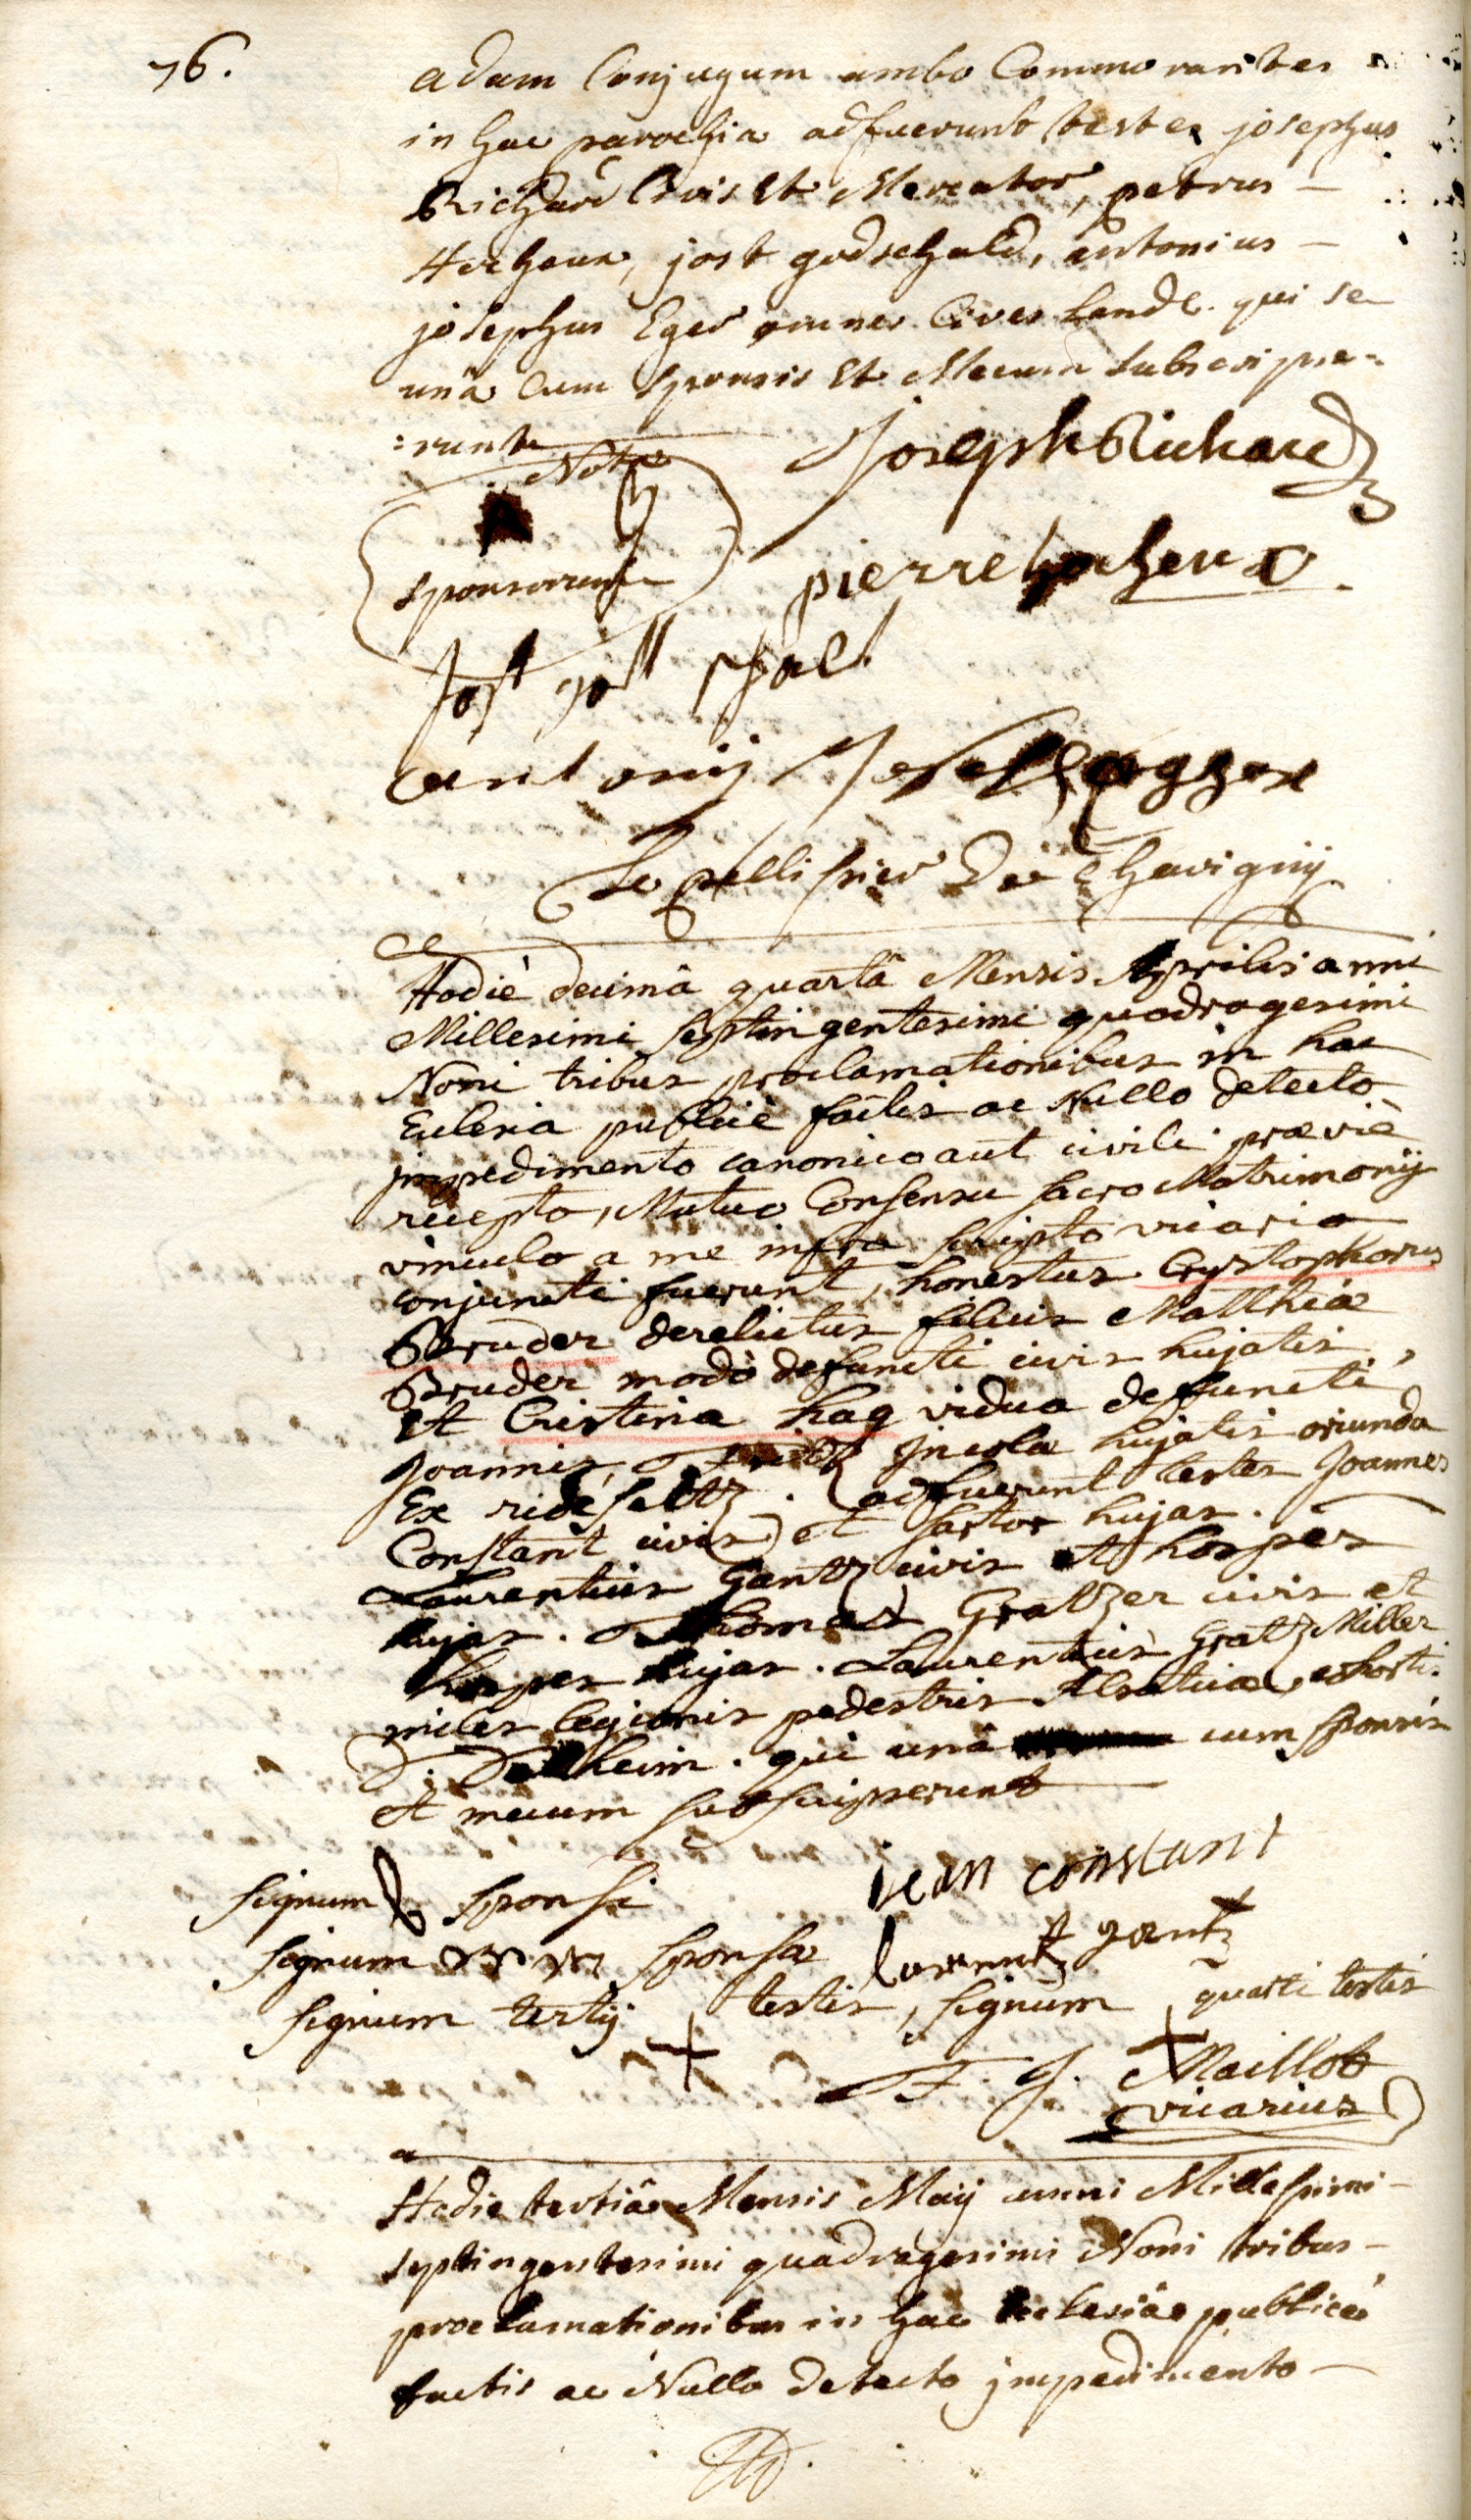 76.
adam Conjugum ambo Commorantes
in hac parochia adfuerunt testes josephus
Richard Civis Et Mercator, petrus –
jost godschald, antonius –
josephus Eger omnes Cives Land. qui se
unâ Cum Sponsis Et Mecum Subscripse=
=runt
Nota
Joseph Richard
sponsorum
pierre
Jost gott schalt
antonij Joseph
Le pellissier De Chavigny
Hodiè decimâ quartâ Mensis Aprilis anni
Millesimi septingentesimi quadragesimi
Noni tribus proclamationibus in hac
Eclesia publicè factis ac Nullo detecto
jmpedimento canonico aut civili præviè
recepto, Mutuo Consensu sacro Matrimonij
vinculo a me infra scripto vicario
conjuncti fuerunt, honestus Crystophorus
Bruder derelictus filius Matthiæ
Bruder modò defuncti civis hujatis,
Et Cristina hag vidua defuncti
Joannis jncola hujatis oriunda
Ex ride seltz. adfuerunt testes Joannes
Constant civis et sartor hujas.
Laurentius Gantz civis et hospes
hujas. Thomas Gratzer civis et
hospes hujas. Laurentius Gratz Miller
miles legionis pedestris Alsatiæ, cohorti:
D: heim. qui unâ cum sponsis
et mecum subscripserunt
Signum sponsi
jean constant
Signum sponsæ
lorentz gantz
Signum tertij testis, signum quarti testis
F. J. Maillot
vicarius
Hodie tertiâ Mensis Maij anni Millesimi –
septingentesimi quadragesimi Noni tribus –
proclamationibus in hac Ecclesiâ publicè
factis ac Nullo detecto jmpedimento –